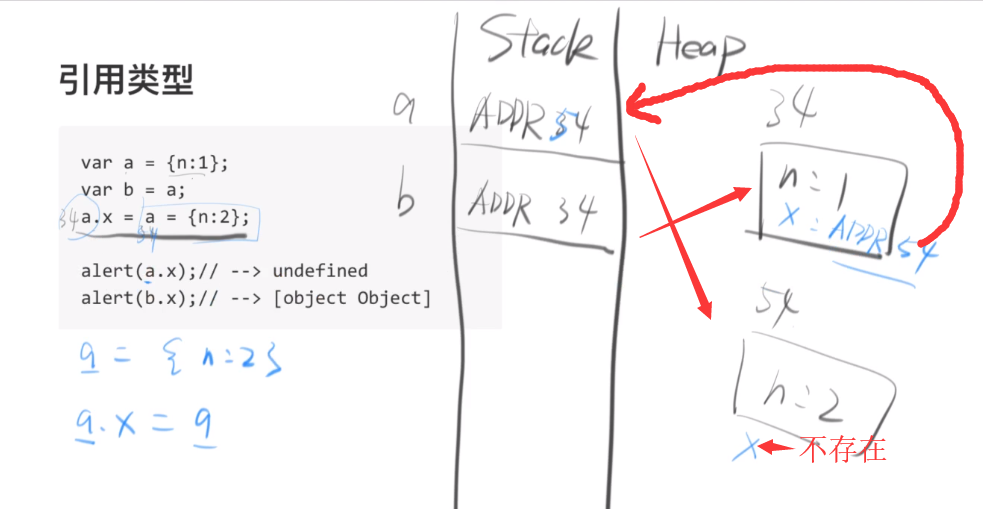 引用类型
var a = {n:1};
var b = a;
34 a.x = a = {n:2};
34
alert(a.x);// --> undefined
alert(b.x);// --> [object Object]
a = { n:2}
a.x = a
Stack
a ADDR 54
b ADDR 34
Heap
34
n:1
x:ADDR 54
54
n:2
x 不存在